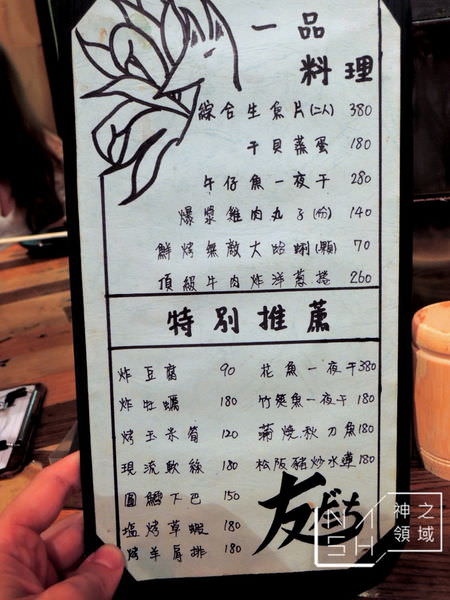 一品
料理
綜合生魚片(二人) 380
干貝蒸蛋 180
午仔魚一夜干 280
爆漿雞肉丸子(份) 140
鮮烤無敵大蛤蜊(顆) 70
頂級牛肉炸洋蔥捲 260
特別推薦
炸豆腐 90
炸牡蠣 180
烤玉米筍 120
現流軟絲 180
圓鱈下巴 150
塩烤草蝦 180
烤羊肩排 180
花魚一夜干 380
竹筴魚一夜干 180
蒲燒秋刀魚 180
松阪豬炒水蓮 180
友だち
神之
領域